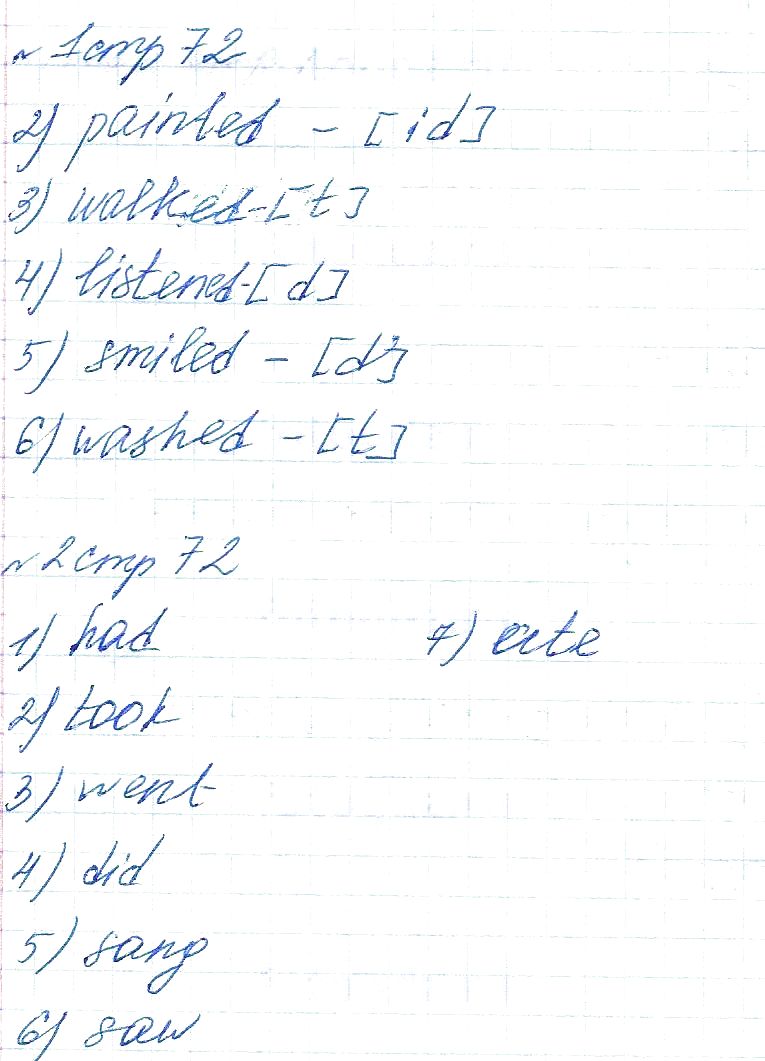 №1 стр 72
2) painted - [id]
3) walked-[t]
4) listened-[d]
5) smiled - [d]
6) washed - [t]
№2 стр 72
1) had
2) took
3) went
4) did
5) sang
6) saw
7) ate